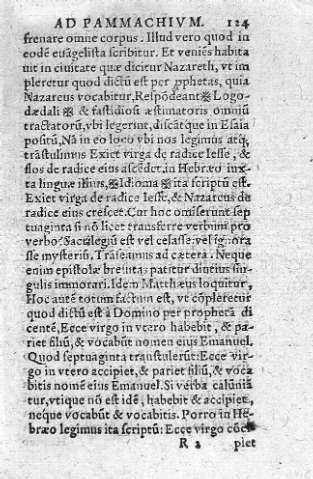 AD PAMMACHIVM. 124
frenare omne corpus. Illud vero quod in
eodē euāgelista scribitur. Et veniēs habita
uit in ciuitate quæ dicitur Nazareth, vt im
pleretur quod dictū est per ꝓphetas, quia
Nazareus vocabitur, Respōdeant ※ Logo-
dædali ※ & fastidiosi æstimatores omniū
tractatorū, vbi legerint, discātque in Esaia
positū, Nā in eo loco vbi nos legimus atq́;
trāstulimus Exiet virga de radice Iesse, &
flos de radice eius ascēdet, in Hebræo iux-
ta linguæ illius, ※ Idioma ※ ita scriptū est.
Exiet virga de radice Iesse, & Nazareus de
radice eius crescet. Cur hoc omiserunt sep
tuaginta si nō licet transferre verbum pro
verbo? Sacrilegiū est vel celasse vel ignoras
se mysteriū, Trāseamus ad cætera. Neque
enim epistolæ breuitas patitur diutius sin-
gulis immorari. Idem Matthæus loquitur,
Hoc autem totum factum est, vt cōpleretur
quod dictū est à Domino per prophetā di
centē, Ecce virgo in vtero habebit, & pa-
riet filiū, & vocabūt nomen eius Emanuel.
Quod septuaginta transtulerūt: Ecce vir-
go in vtero accipiet, & pariet filiū, & voca
bitis nomē eius Emanuel. Si verba calūniā
tur, vtique nō est idē, habebit & accipiet,
neque vocabūt & vocabitis. Porro in He-
bræo legimus ita scriptū: Ecce virgo cōci
R 2 piet